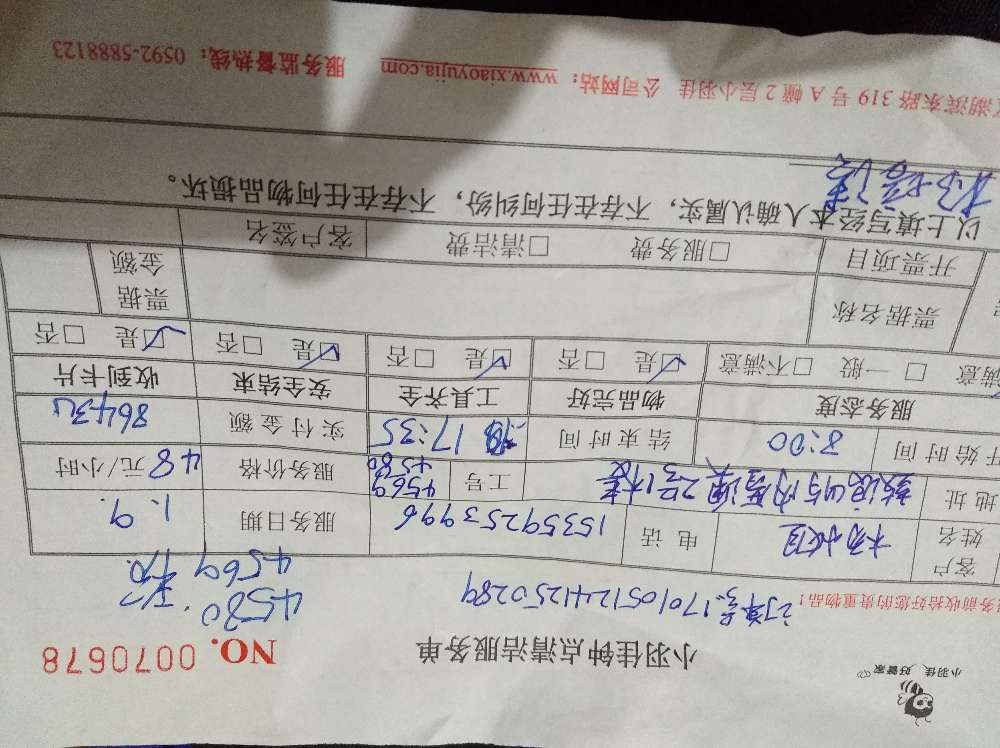 小羽佳，好管家
小羽佳钟点清洁服务单
NO. 0070678
务前收拾好您的贵重物品！
订单号.17010512441250289
4580.
4569
客户姓名
电话
15359253996
服务日期
1.9.
地址
工号
4569
4580
服务价格
48元/小时
开始时间
8:00
结束时间
17:35
实付金额
864元
服务态度
物品完好
工具齐全
安全结束
收到卡片
满意 □ 一般 □不满意
☑是 □否
☑是 □否
☑是 □否
☑是 □否
票据名称
票据金额
开票项目
□服务费 □清洁费
客户签名
以上填写经本人确认属实，不存在任何纠纷，不存在任何物品损坏。
湖滨东路 319 号 A 幢 2 层小羽佳 公司网站：www.xiaoyujia.com 服务监督热线：0592-5888123